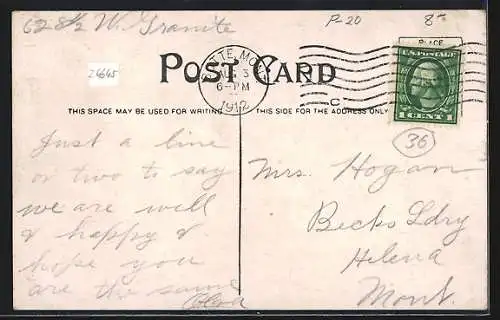 628½ W. Granite
P-20
8-
PLACE
24645
BUTTE, MONT.
AUG 3
6-PM
1912
C
POST CARD
U.S. POSTAGE
1 CENT 1
THIS SPACE MAY BE USED FOR WRITING
THIS SIDE FOR THE ADDRESS ONLY
36
Just a line
or two to say
we are well
& happy &
hope you
are the same
Mrs. Hogan
Becks Ldry
Helena
Mont.